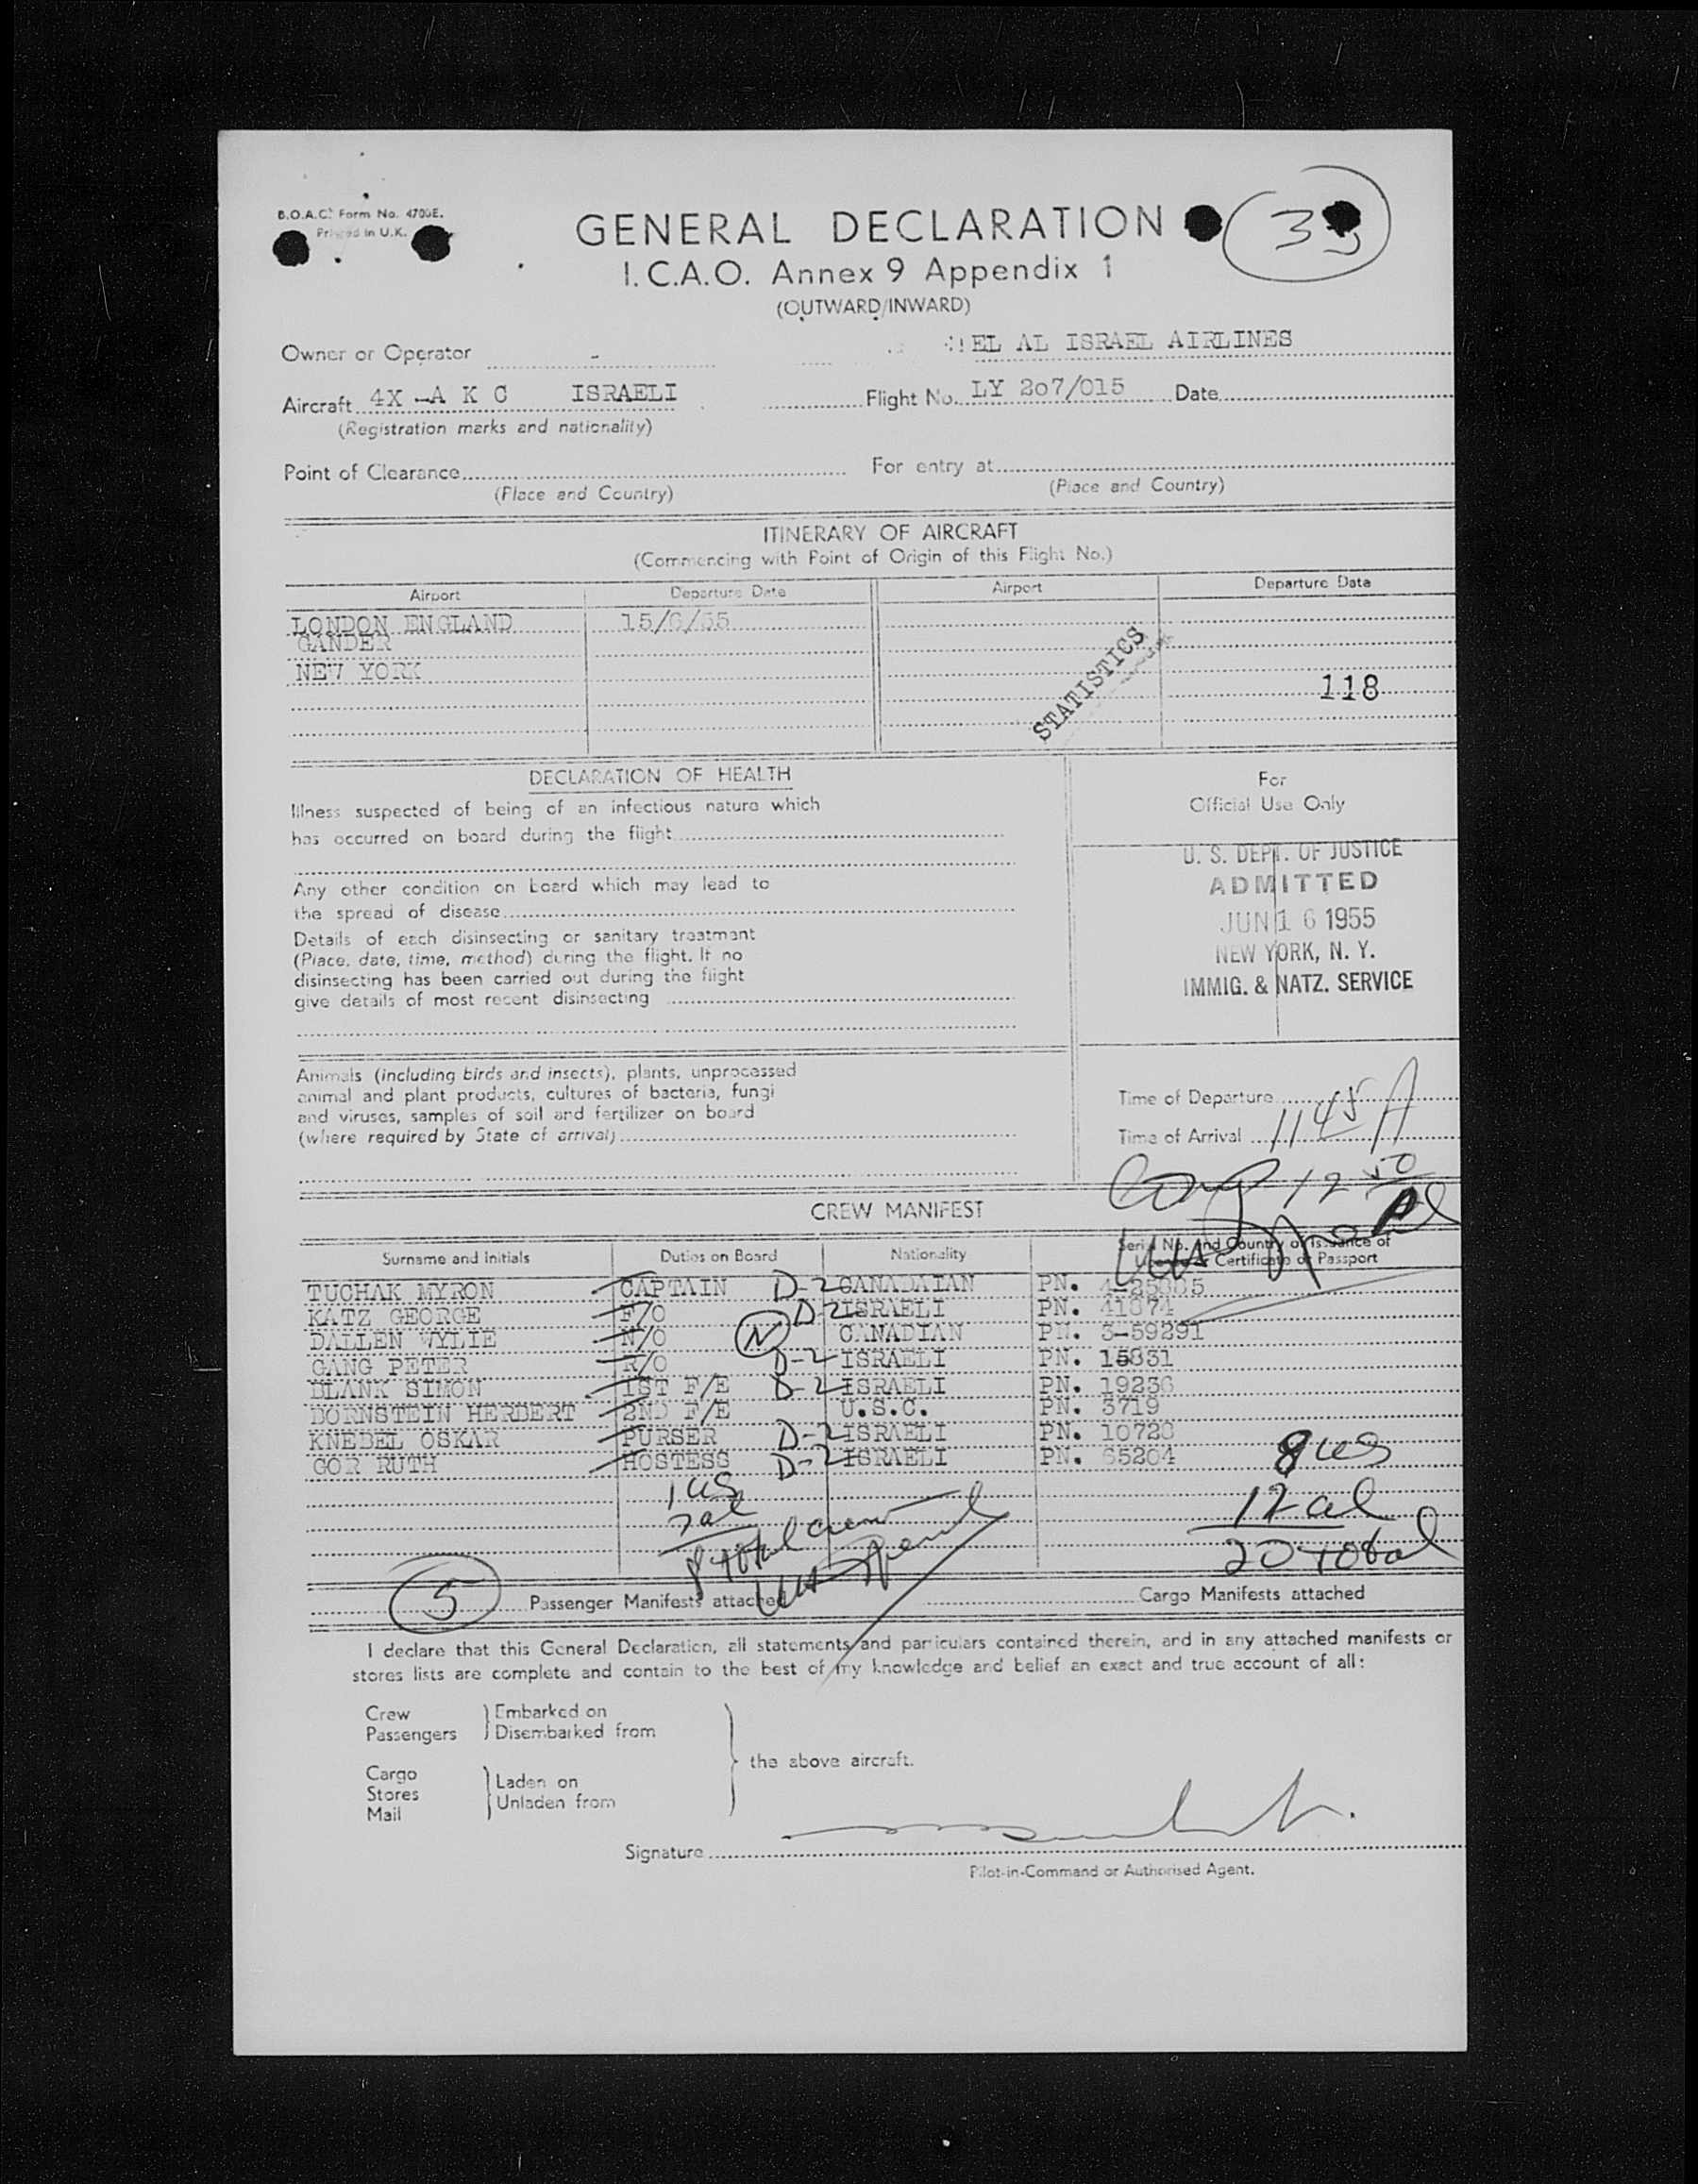 B.O.A.C. Form No. 4700E.
Printed in U.K.
GENERAL DECLARATION
I.C.A.O. Annex 9 Appendix 1
(OUTWARD/INWARD)
Owner or Operator EL AL ISRAEL AIRLINES
Aircraft 4X -A K C ISRAELI Flight No. LY 207/015 Date
(Registration marks and nationality)
Point of Clearance For entry at
(Place and Country) (Place and Country)
ITINERARY OF AIRCRAFT
(Commencing with Point of Origin of this Flight No.)
Airport Departure Date Airport Departure Date
LONDON ENGLAND 15/6/55
GANDER
NEW YORK
STATISTICS
118
DECLARATION OF HEALTH
Illness suspected of being of an infectious nature which
has occurred on board during the flight
Any other condition on board which may lead to
the spread of disease
Details of each disinsecting or sanitary treatment
(Place, date, time, method) during the flight. If no
disinsecting has been carried out during the flight
give details of most recent disinsecting
For
Official Use Only
U. S. DEPT. OF JUSTICE
ADMITTED
JUN 16 1955
NEW YORK, N. Y.
IMMIG. & NATZ. SERVICE
Animals (including birds and insects), plants, unprocessed
animal and plant products, cultures of bacteria, fungi
and viruses, samples of soil and fertilizer on board
(where required by State of arrival)
Time of Departure
Time of Arrival 1145 A
12 50
CREW MANIFEST
Surname and Initials Duties on Board Nationality Serial No. and Country of Issuance of
Certificate or Passport
TUCHAK MYRON CAPTAIN D-2 CANADAIAN PN.
KATZ GEORGE F/O D-2 ISRAELI PN. 41874
DALLEN WYLIE N/O N CANADIAN PN. 3-59291
GANG PETER R/O D-2 ISRAELI PN. 15831
BLANK SIMON 1ST F/E D-2 ISRAELI PN. 19236
BORNSTEIN HERBERT 2ND F/E U.S.C. PN. 3719
KNEBEL OSKAR PURSER D-2 ISRAELI PN. 10728
GOR RUTH HOSTESS D-2 ISRAELI PN. 65204
8 us
1 us
7 al
12 al
8 total crew
20 total
5 Passenger Manifests attached Cargo Manifests attached
I declare that this General Declaration, all statements and particulars contained therein, and in any attached manifests or
stores lists are complete and contain to the best of my knowledge and belief an exact and true account of all:
Crew Embarked on
Passengers Disembarked from
the above aircraft.
Cargo
Stores Laden on
Mail Unladen from
Signature
Pilot-in-Command or Authorised Agent.